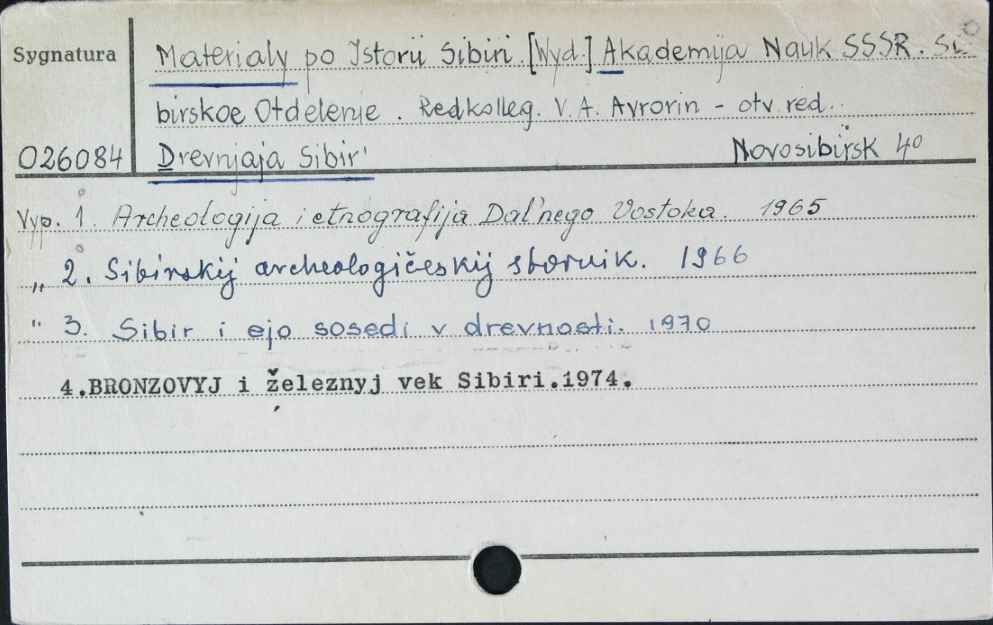 Sygnatura Materialy po Istorii Sibiri. [Wyd.] Akademija Nauk SSSR. Si
birskoe Otdelenie. Redkolleg. V. A. Avrorin - otv. red..
026084 Drevnjaja Sibir' Novosibirsk 40
Vyp. 1. Archeologija i etnografija Dal'nego Vostoka. 1965
" 2. Sibirskij archeologičeskij sbornik. 1966
" 3. Sibir i ejo sosedi v drevnosti. 1970
4.BRONZOVYJ i železnyj vek Sibiri.1974.